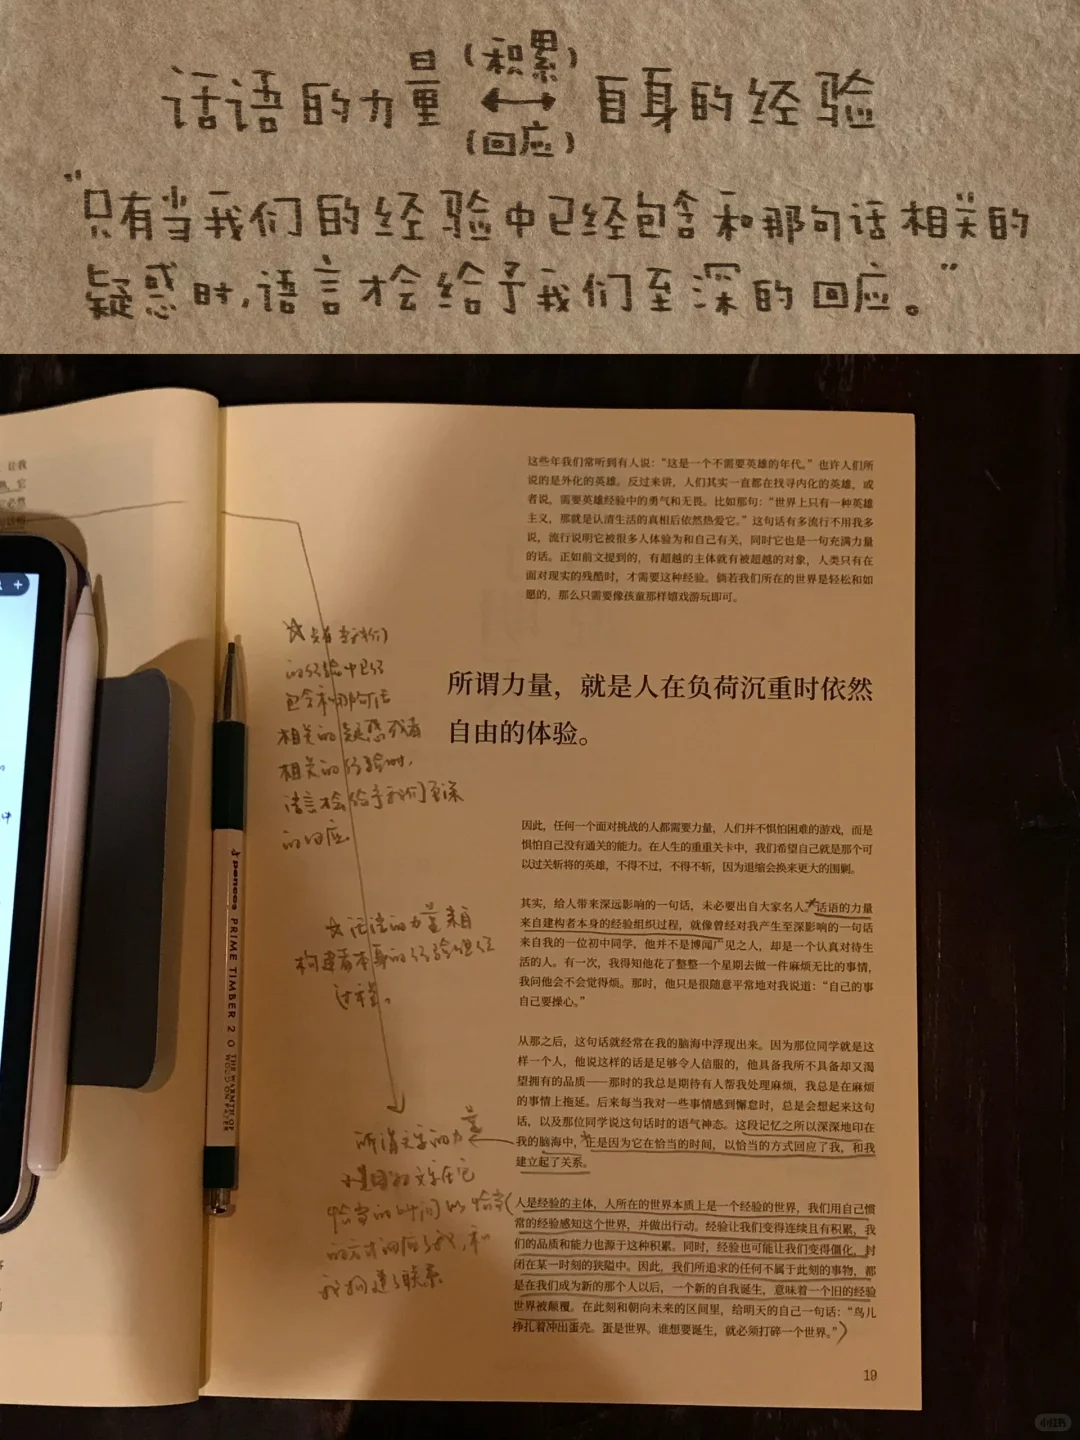 话语的力量 (积累) ↔ (回应) 自身的经验
“只有当我们的经验中已经包含和那句话相关的
疑惑时,语言才会给予我们至深的回应。”
让我
这些年我们常听到有人说：“这是一个不需要英雄的年代。”也许人们所
说的是外化的英雄。反过来讲，人们其实一直都在找寻内化的英雄，或
者说，需要英雄经验中的勇气和无畏。比如那句：“世界上只有一种英雄
主义，那就是认清生活的真相后依然热爱它。”这句话有多流行不用我多
说，流行说明它被很多人体验为和自己有关，同时它也是一句充满力量
的话。正如前文提到的，有超越的主体就有被超越的对象，人类只有在
面对现实的残酷时，才需要这种经验。倘若我们所在的世界是轻松和如
愿的，那么只需要像孩童那样嬉戏游玩即可。
☆只有当我们
的经验中已经
包含和那句话
相关的疑惑或者
相关的经验时，
语言才会给予我们至深
的回应。
所谓力量，就是人在负荷沉重时依然
自由的体验。
因此，任何一个面对挑战的人都需要力量，人们并不惧怕困难的游戏，而是
惧怕自己没有通关的能力。在人生的重重关卡中，我们希望自己就是那个可
以过关斩将的英雄，不得不过，不得不斩，因为退缩会换来更大的围剿。
☆话语的力量来自
构建者本身的经验组织
过程。
其实，给人带来深远影响的一句话，未必要出自大家名人。话语的力量
来自建构者本身的经验组织过程，就像曾经对我产生至深影响的一句话
来自我的一位初中同学，他并不是博闻广见之人，却是一个认真对待生
活的人。有一次，我得知他花了整整一个星期去做一件麻烦无比的事情，
我问他会不会觉得烦。那时，他只是很随意平常地对我说道：“自己的事
自己要操心。”
从那之后，这句话就经常在我的脑海中浮现出来。因为那位同学就是这
样一个人，他说这样的话是足够令人信服的，他具备我所不具备却又渴
望拥有的品质——那时的我总是期待有人帮我处理麻烦，我总是在麻烦
的事情上拖延。后来每当我对一些事情感到懈怠时，总是会想起来这句
话，以及那位同学说这句话时的语气神态。这段记忆之所以深深地印在
我的脑海中，正是因为它在恰当的时间，以恰当的方式回应了我，和我
建立起了关系。
所谓文字的力量
是因为文字在它
恰当的时间以恰当
的方式回应了我，和
我构建了联系
人是经验的主体，人所在的世界本质上是一个经验的世界，我们用自己惯
常的经验感知这个世界，并做出行动。经验让我们变得连续且有积累，我
们的品质和能力也源于这种积累。同时，经验也可能让我们变得僵化，封
闭在某一时刻的狭隘中。因此，我们所追求的任何不属于此刻的事物，都
是在我们成为新的那个人以后，一个新的自我诞生，意味着一个旧的经验
世界被颠覆。在此刻和朝向未来的区间里，给明天的自己一句话：“鸟儿
挣扎着冲出蛋壳。蛋是世界。谁想要诞生，就必须打碎一个世界。”
19
penco PRIME TIMBER 2.0
小红书